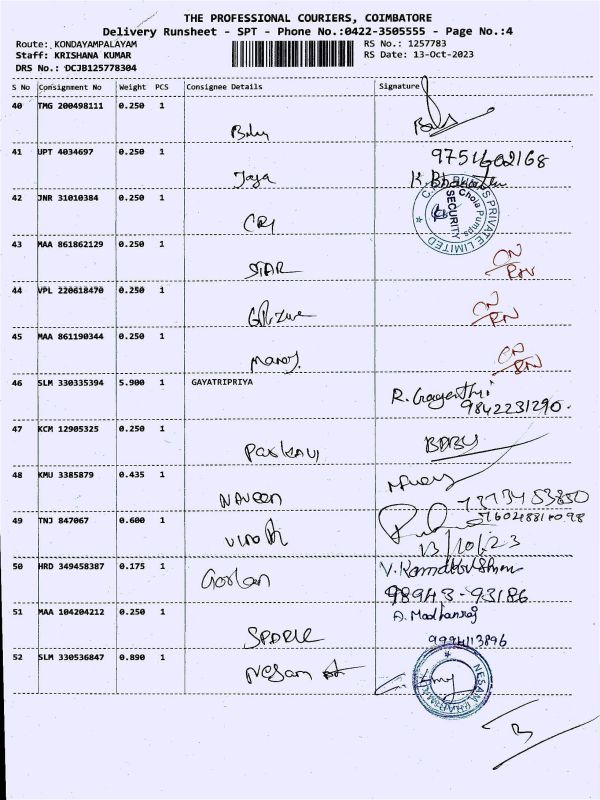 THE PROFESSIONAL COURIERS, COIMBATORE
Delivery Runsheet - SPT - Phone No.:0422-3505555 - Page No.:4
Route: KONDAYAMPALAYAM RS No.: 1257783
Staff: KRISHANA KUMAR RS Date: 13-Oct-2023
DRS No.: DCJB125778304
S No Consignment No Weight PCS Consignee Details Signature
40 TMG 200498111 0.250 1
41 UPT 4034697 0.250 1
9751602168
Jaya
42 JNR 31010384 0.250 1
CRI
SECURITY
PRIVATE LIMITED
43 MAA 861862129 0.250 1
STAR
44 VPL 220618470 0.250 1
45 MAA 861190344 0.250 1
Manoj
46 SLM 330335394 5.900 1 GAYATRIPRIYA
R. Gayenthri
9842231290.
47 KCM 12905325 0.250 1
48 KMU 3385879 0.435 1
NAVEEN
49 TNJ 847067 0.600 1
13/10/23
50 HRD 349458387 0.175 1
98943-93186
51 MAA 104204212 0.250 1
A. Madhanraj
9994113896
52 SLM 330536847 0.890 1
Nesam
NESAM